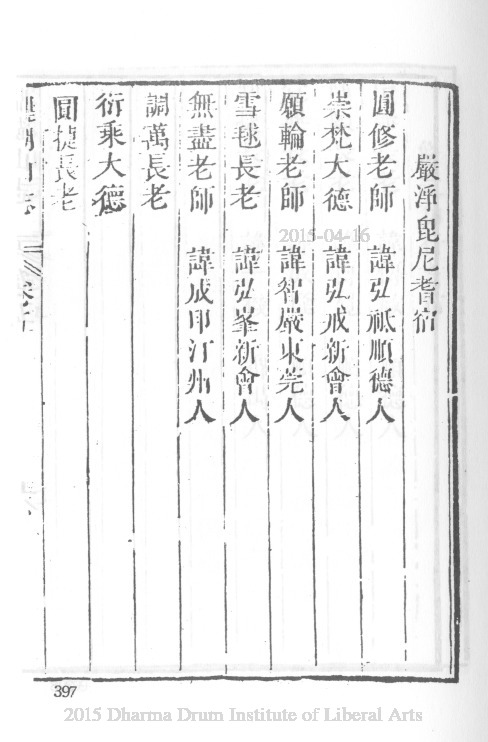 嚴淨毘尼耆宿
圓修老師 諱弘祗順德人
崇梵大德 諱弘戒新會人
願輪老師 諱智嚴東莞人
雪毬長老 諱弘峯新會人
無盡老師 諱成印汀州人
調萬長老
衍乘大德
圓捷長老
山志 卷五
397
2015-04-16
2015 Dharma Drum Institute of Liberal Arts